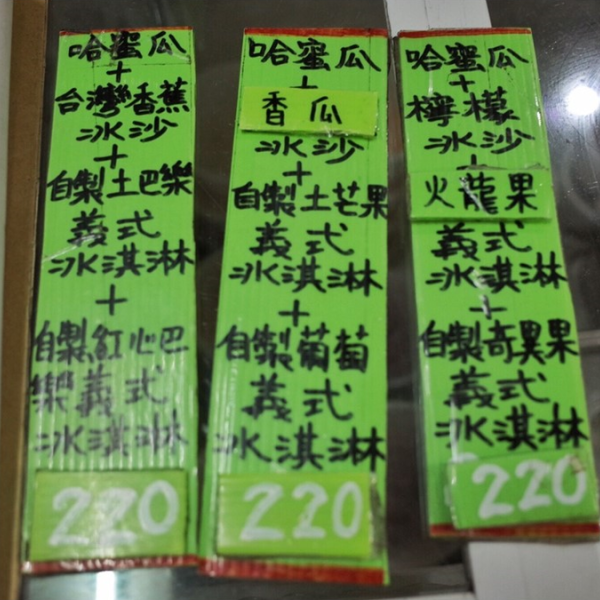 哈蜜瓜
+
台灣香蕉
冰沙
+
自製土巴樂
義式
冰淇淋
+
自製紅心巴
樂義式
冰淇淋
220
哈蜜瓜
+
香瓜
冰沙
+
自製土芒果
義式
冰淇淋
+
自製葡萄
義式
冰淇淋
220
哈蜜瓜
+
檸檬
冰沙
+
火龍果
義式
冰淇淋
+
自製奇異果
義式
冰淇淋
220